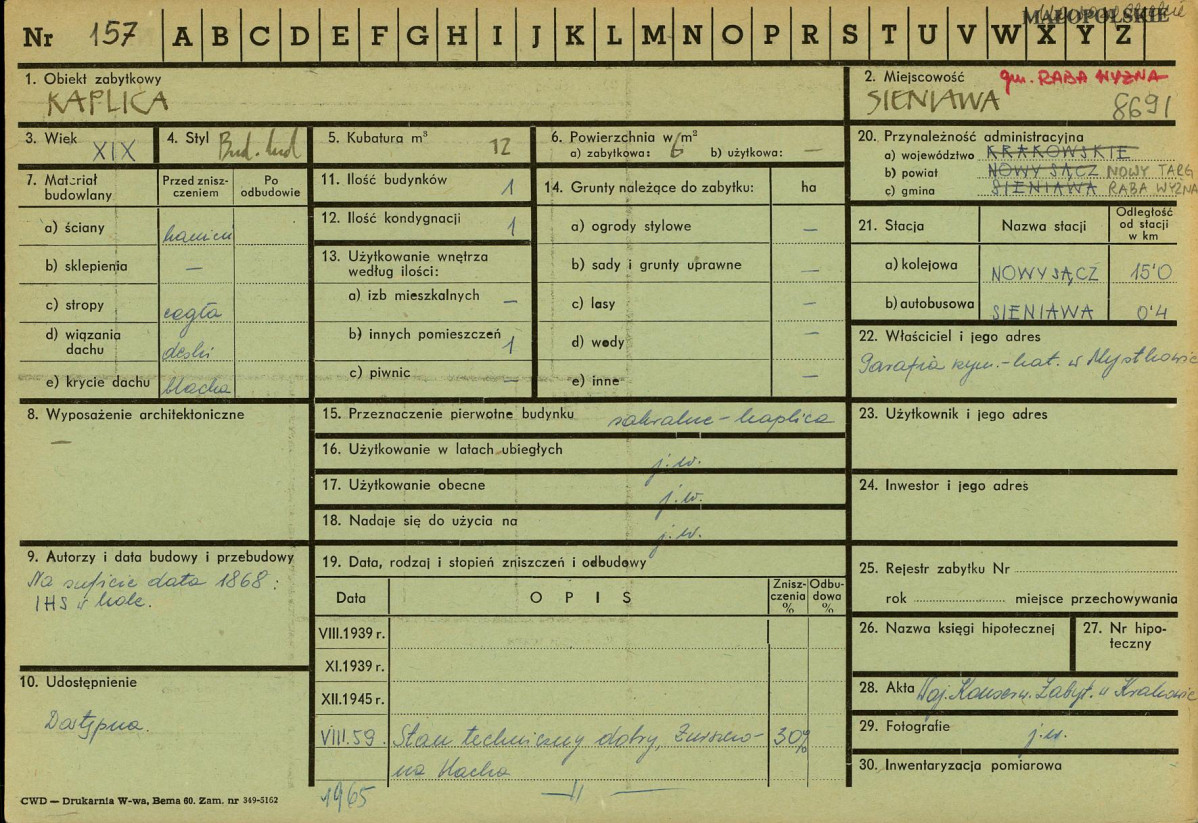 MAŁOPOLSKIE
Nr 157 A B C D E F G H I J K L M N O P R S T U V W X Y Z
1. Obiekt zabytkowy
KAPLICA
2. Miejscowość gm. RABA WYŻNA
SIENIAWA 8691
3. Wiek XIX
4. Styl Bud. lud
5. Kubatura m³ 12
6. Powierzchnia w m²
a) zabytkowa: 6 b) użytkowa: —
7. Materiał budowlany
Przed zniszczeniem
Po odbudowie
a) ściany kamień
b) sklepienia —
c) stropy cegła
d) wiązania dachu deski
e) krycie dachu blacha
8. Wyposażenie architektoniczne
—
9. Autorzy i data budowy i przebudowy
Na suficie data 1868:
IHS w kole.
10. Udostępnienie
Dostępna.
11. Ilość budynków 1
12. Ilość kondygnacji 1
13. Użytkowanie wnętrza według ilości:
a) izb mieszkalnych —
b) innych pomieszczeń 1
c) piwnic —
14. Grunty należące do zabytku: ha
a) ogrody stylowe —
b) sady i grunty uprawne —
c) lasy —
d) wody —
e) inne —
15. Przeznaczenie pierwotne budynku sakralne - kaplica
16. Użytkowanie w latach ubiegłych j.w.
17. Użytkowanie obecne j.w.
18. Nadaje się do użycia na j.w.
19. Data, rodzaj i stopień zniszczeń i odbudowy
Data OPIS Zniszczenia % Odbudowa %
VIII.1939 r.
XI.1939 r.
XII.1945 r.
VIII.59. Stan techniczny dobry, Zniszczo- 30%
na blacha
1965 —||—
20. Przynależność administracyjna
a) województwo KRAKOWSKIE
b) powiat NOWY SĄCZ NOWY TARG
c) gmina SIENIAWA RABA WYŻNA
21. Stacja Nazwa stacji Odległość od stacji w km
a) kolejowa NOWY SĄCZ 15'0
b) autobusowa SIENIAWA 0'4
22. Właściciel i jego adres
Parafia rzym.-kat. w Mystkowie
23. Użytkownik i jego adres
24. Inwestor i jego adres
25. Rejestr zabytku Nr
rok miejsce przechowywania
26. Nazwa księgi hipotecznej
27. Nr hipoteczny
28. Akta Woj. Konserw. Zabyt. w Krakowie
29. Fotografie j.w.
30. Inwentaryzacja pomiarowa
CWD — Drukarnia W-wa, Bema 60. Zam. nr 349-5162